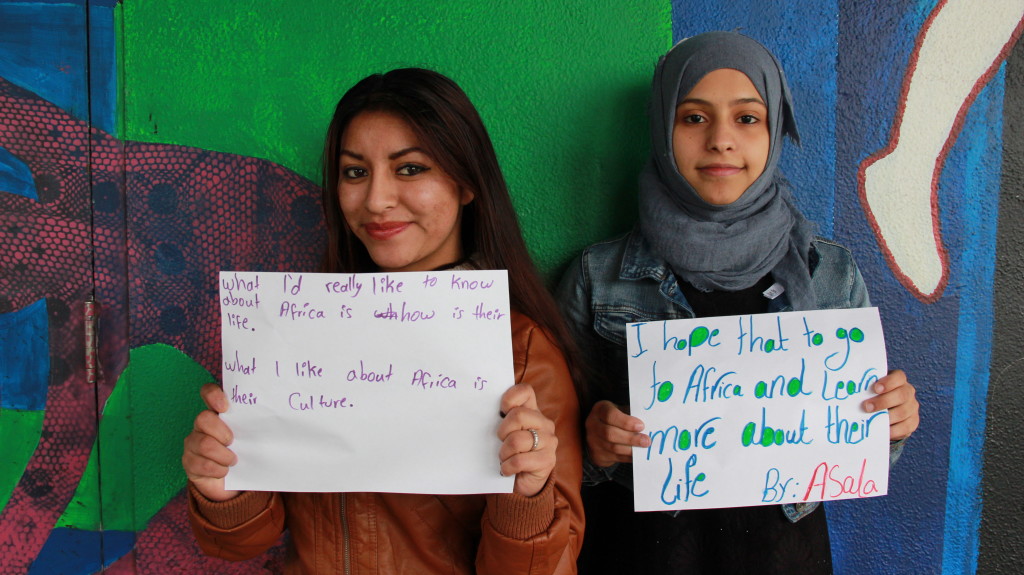 What I'd really like to know
about Africa is how is their
life.
What I like about Africa is
their Culture.
I hope that to go
to Africa and Learn
more about their
life
By: ASala